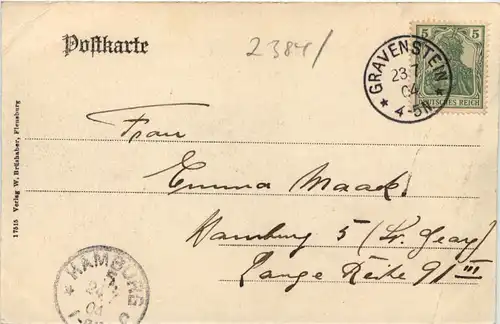 Postkarte
2384/
GRAVENSTEIN
23 7
04
4-5N
5 5
DEUTSCHES REICH
17515 Verlag W. Brüshaber, Flensburg
Frau
Emma Maack
Hamburg 5 (St. Georg)
Lange Reihe 91 III
HAMBURG
5
04